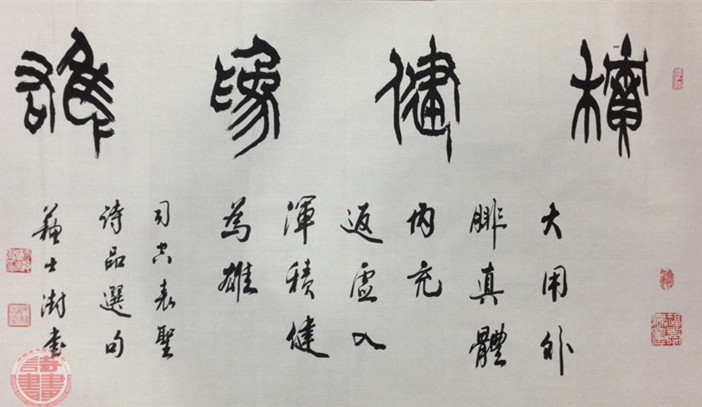 積健為雄
大用外
腓真體
内充
返虛入
渾積健
為雄
司空表聖
詩品選句
蘇士澍書